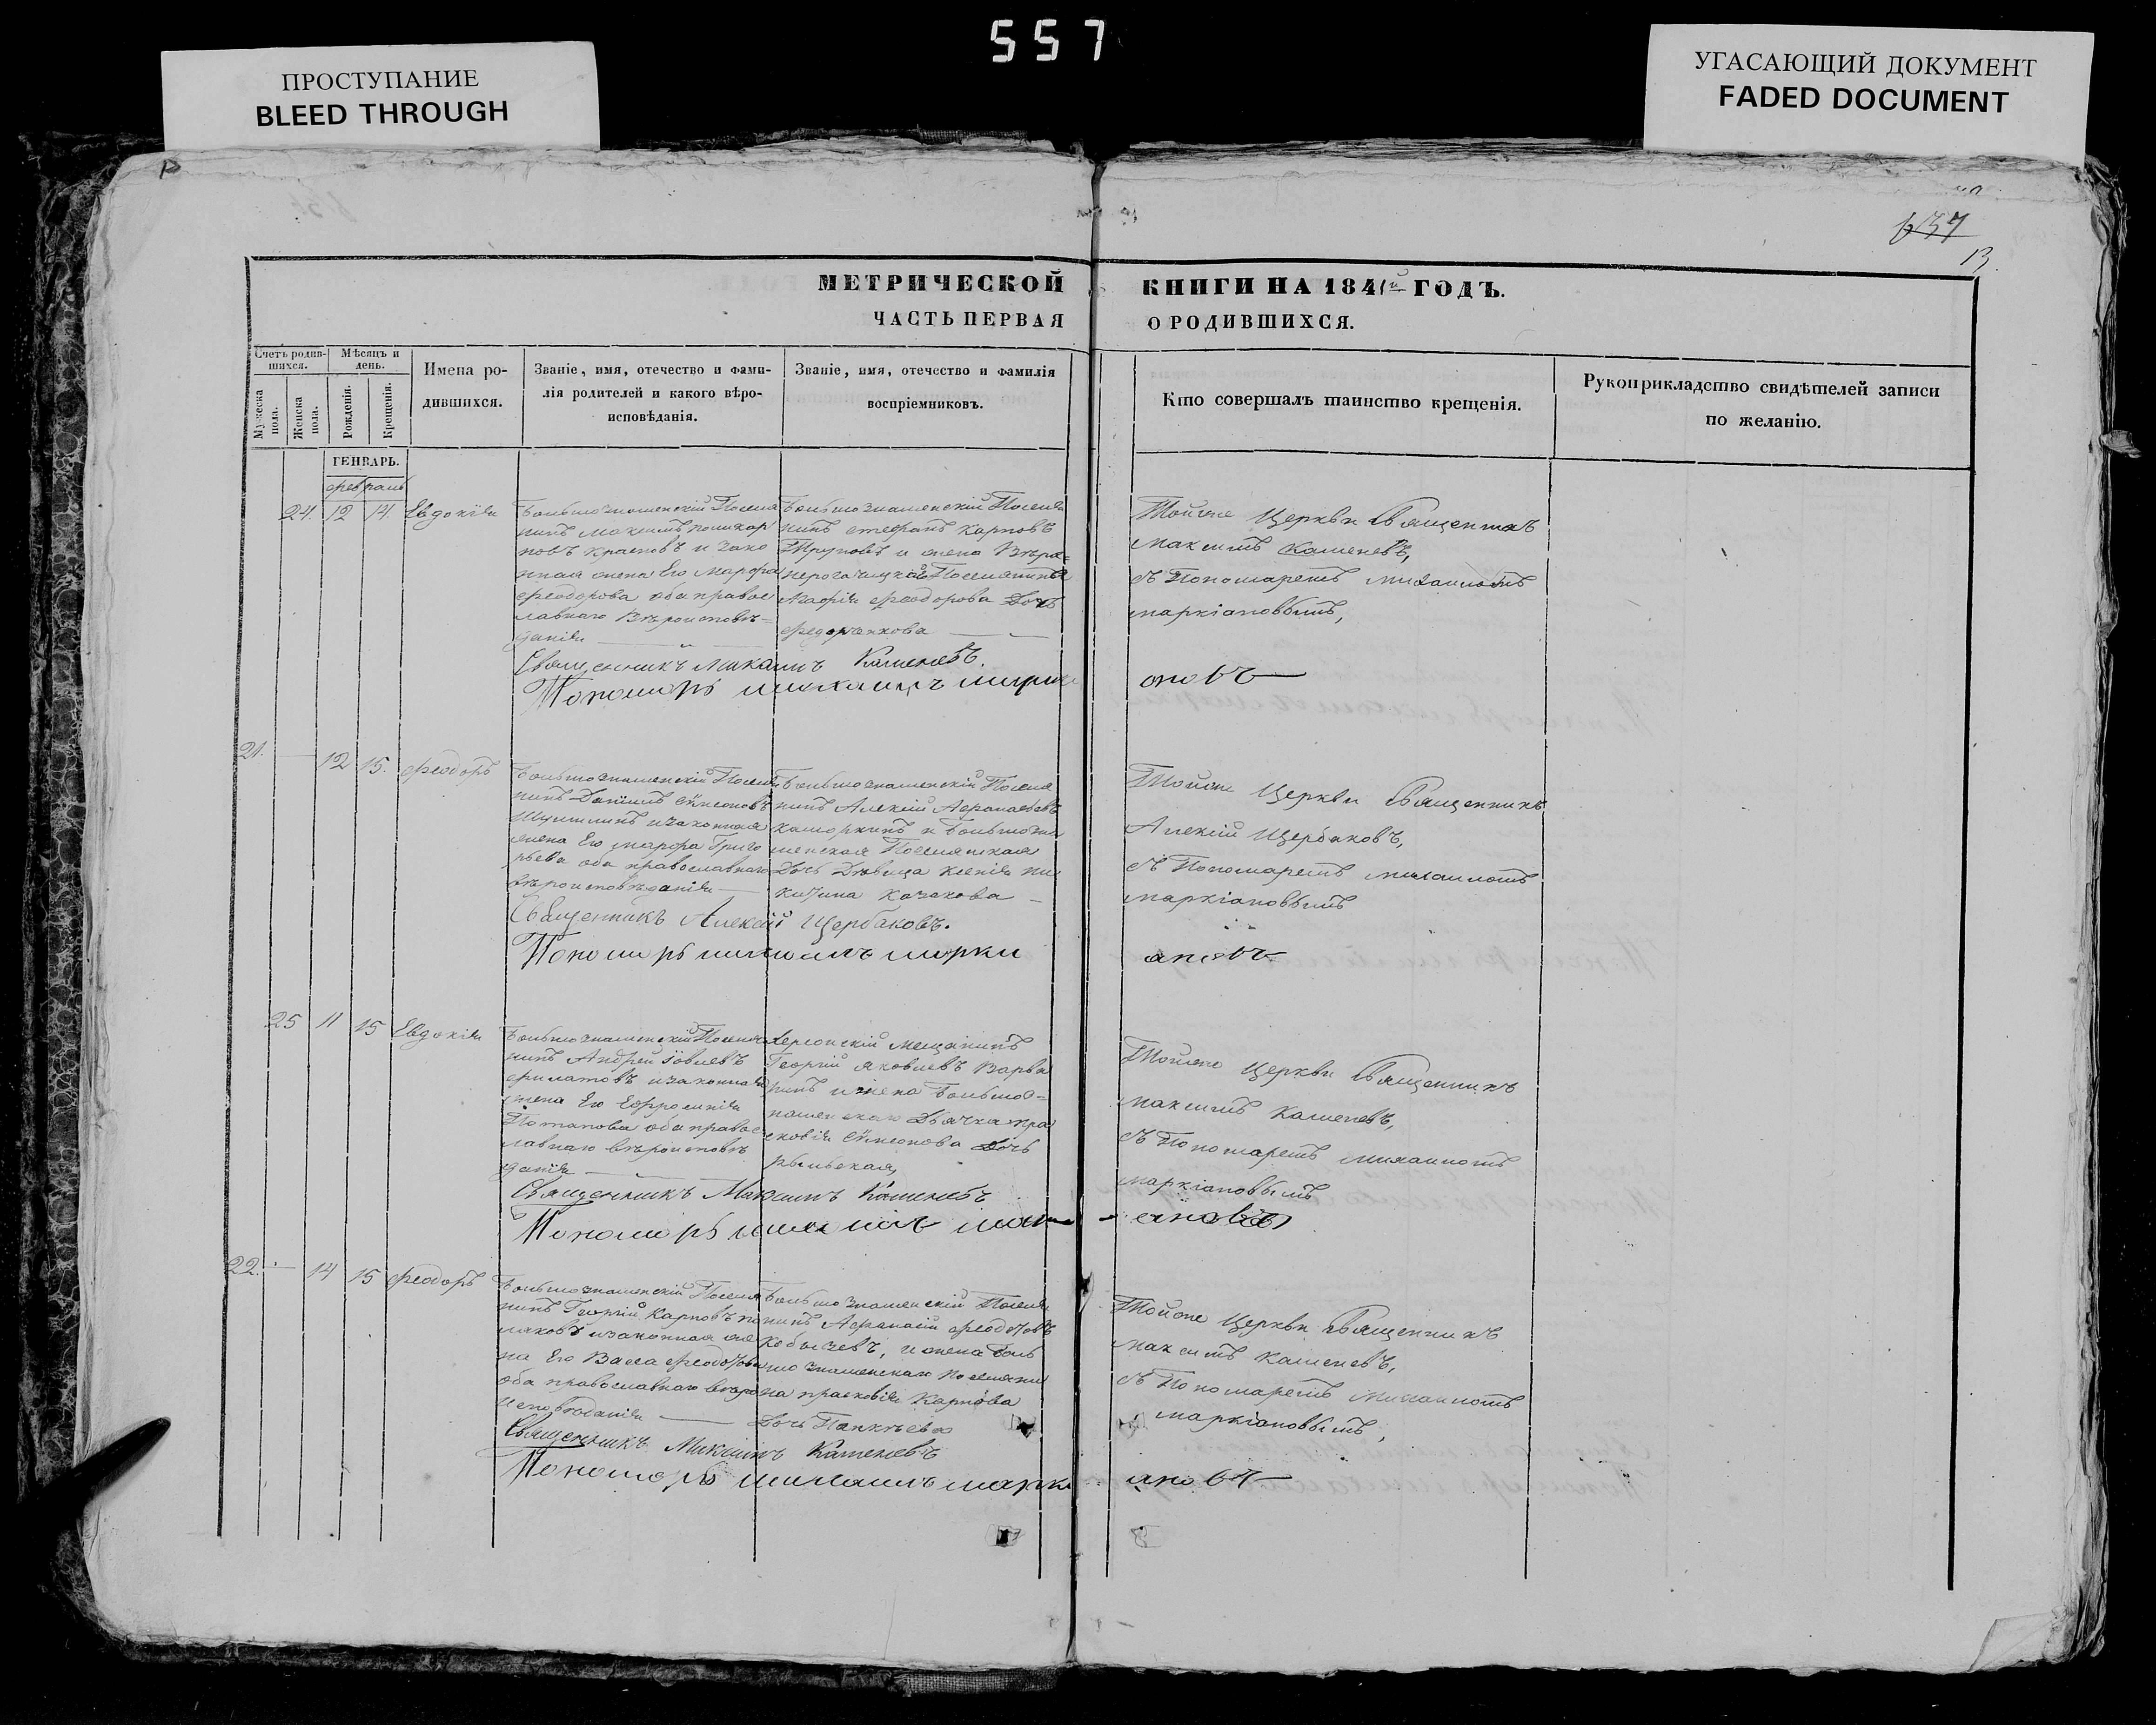 557
ПРОСТУПАНИЕ
BLEED THROUGH
УГАСАЮЩИЙ ДОКУМЕНТ
FADED DOCUMENT
637
13.
МЕТРИЧЕСКОЙ
ЧАСТЬ ПЕРВАЯ
КНИГИ НА 1841й ГОДЪ.
О РОДИВШИХСЯ.
Счетъ родив-
шихся.
Мужеска
пола.
Женска
пола.
Мѣсяцъ и
день.
Рожденія.
Крещенія.
Имена ро-
дившихся.
Званіе, имя, отечество и фами-
лія родителей и какого вѣро-
исповѣданія.
Званіе, имя, отечество и фамилія
воспріемниковъ.
Кто совершалъ таинство крещенія.
Рукоприкладство свидѣтелей записи
по желанію.
ГЕНВАРЬ.
февраль
24. 12 14. Евдокія
Большознаменскій Поселя
нинъ Максимъ Поликар
повъ Красновъ и зако
нная жена Его Марфа
Феодорова оба правос
лавнаго Вѣроисповѣ=
данія
Большознаменскій Поселя
нинъ Стефанъ Карповъ
Трубовъ и жена Верх=
нерогачицкаго Поселянина
Феодорова Дочь
Федорчкова
Тойже Церкви Священникъ
Максимъ Каменевъ,
съ Пономаремъ Михаиломъ
Маркіановымъ,
Священникъ Максимъ Каменевъ.
Пономарь Михаилъ Марки
ановъ
21. 12 15. Феодоръ
Большознаменскій Поселя
нинъ Даніилъ Сѵмеоновъ
и законная
жена Его Марфа Григо
рьева оба православнаго
вѣроисповѣданія
Большознаменскій Поселя
нинъ Алексій Афанасьевъ
Каморкинъ и Большозна
менская Поселянская
Дочь Дѣвица Ксенія Ни
китина Казакова
Тойже Церкви Священникъ
Алексій Щербаковъ,
съ Пономаремъ Михаиломъ
Маркіановымъ
Священникъ Алексій Щербаковъ.
Пономарь Михаилъ Марки
ановъ
25 11 15 Евдокія
Большознаменскій Поселя
нинъ Андрей Іовлевъ
Филатовъ и законная
жена Его Ефросинія
Потапова оба правос
лавнаго вѣроисповѣ
данія
Херсонскій Мещанинъ
Георгій Яковлевъ Варва
ринъ и жена Большоз=
наменскаго Дьячка Пра
сковія Сѵмеонова Дочь
Рыльская,
Тойже Церкви Священникъ
Максимъ Каменевъ,
съ Пономаремъ Михаиломъ
Маркіановымъ
Священникъ Максимъ Каменевъ
Пономарь Михаилъ Марки
ановъ
22. 14 15 Феодоръ
Большознаменскій Поселя
нинъ Георгій Карповъ По
ляковъ и законная же
на Его Васса Феодотова
оба православнаго вѣро
исповѣданія
Большознаменскій Поселя
нинъ Афанасій Феодотовъ
Кобызевъ, и жена Боль
шознаменскаго Поселяни
на Прасковія Карпова
Дочь Панкѣева
Тойже Церкви Священникъ
Максимъ Каменевъ,
съ Пономаремъ Михаиломъ
Маркіановымъ,
Священникъ Максимъ Каменевъ
Пономарь Михаилъ Марки
ановъ